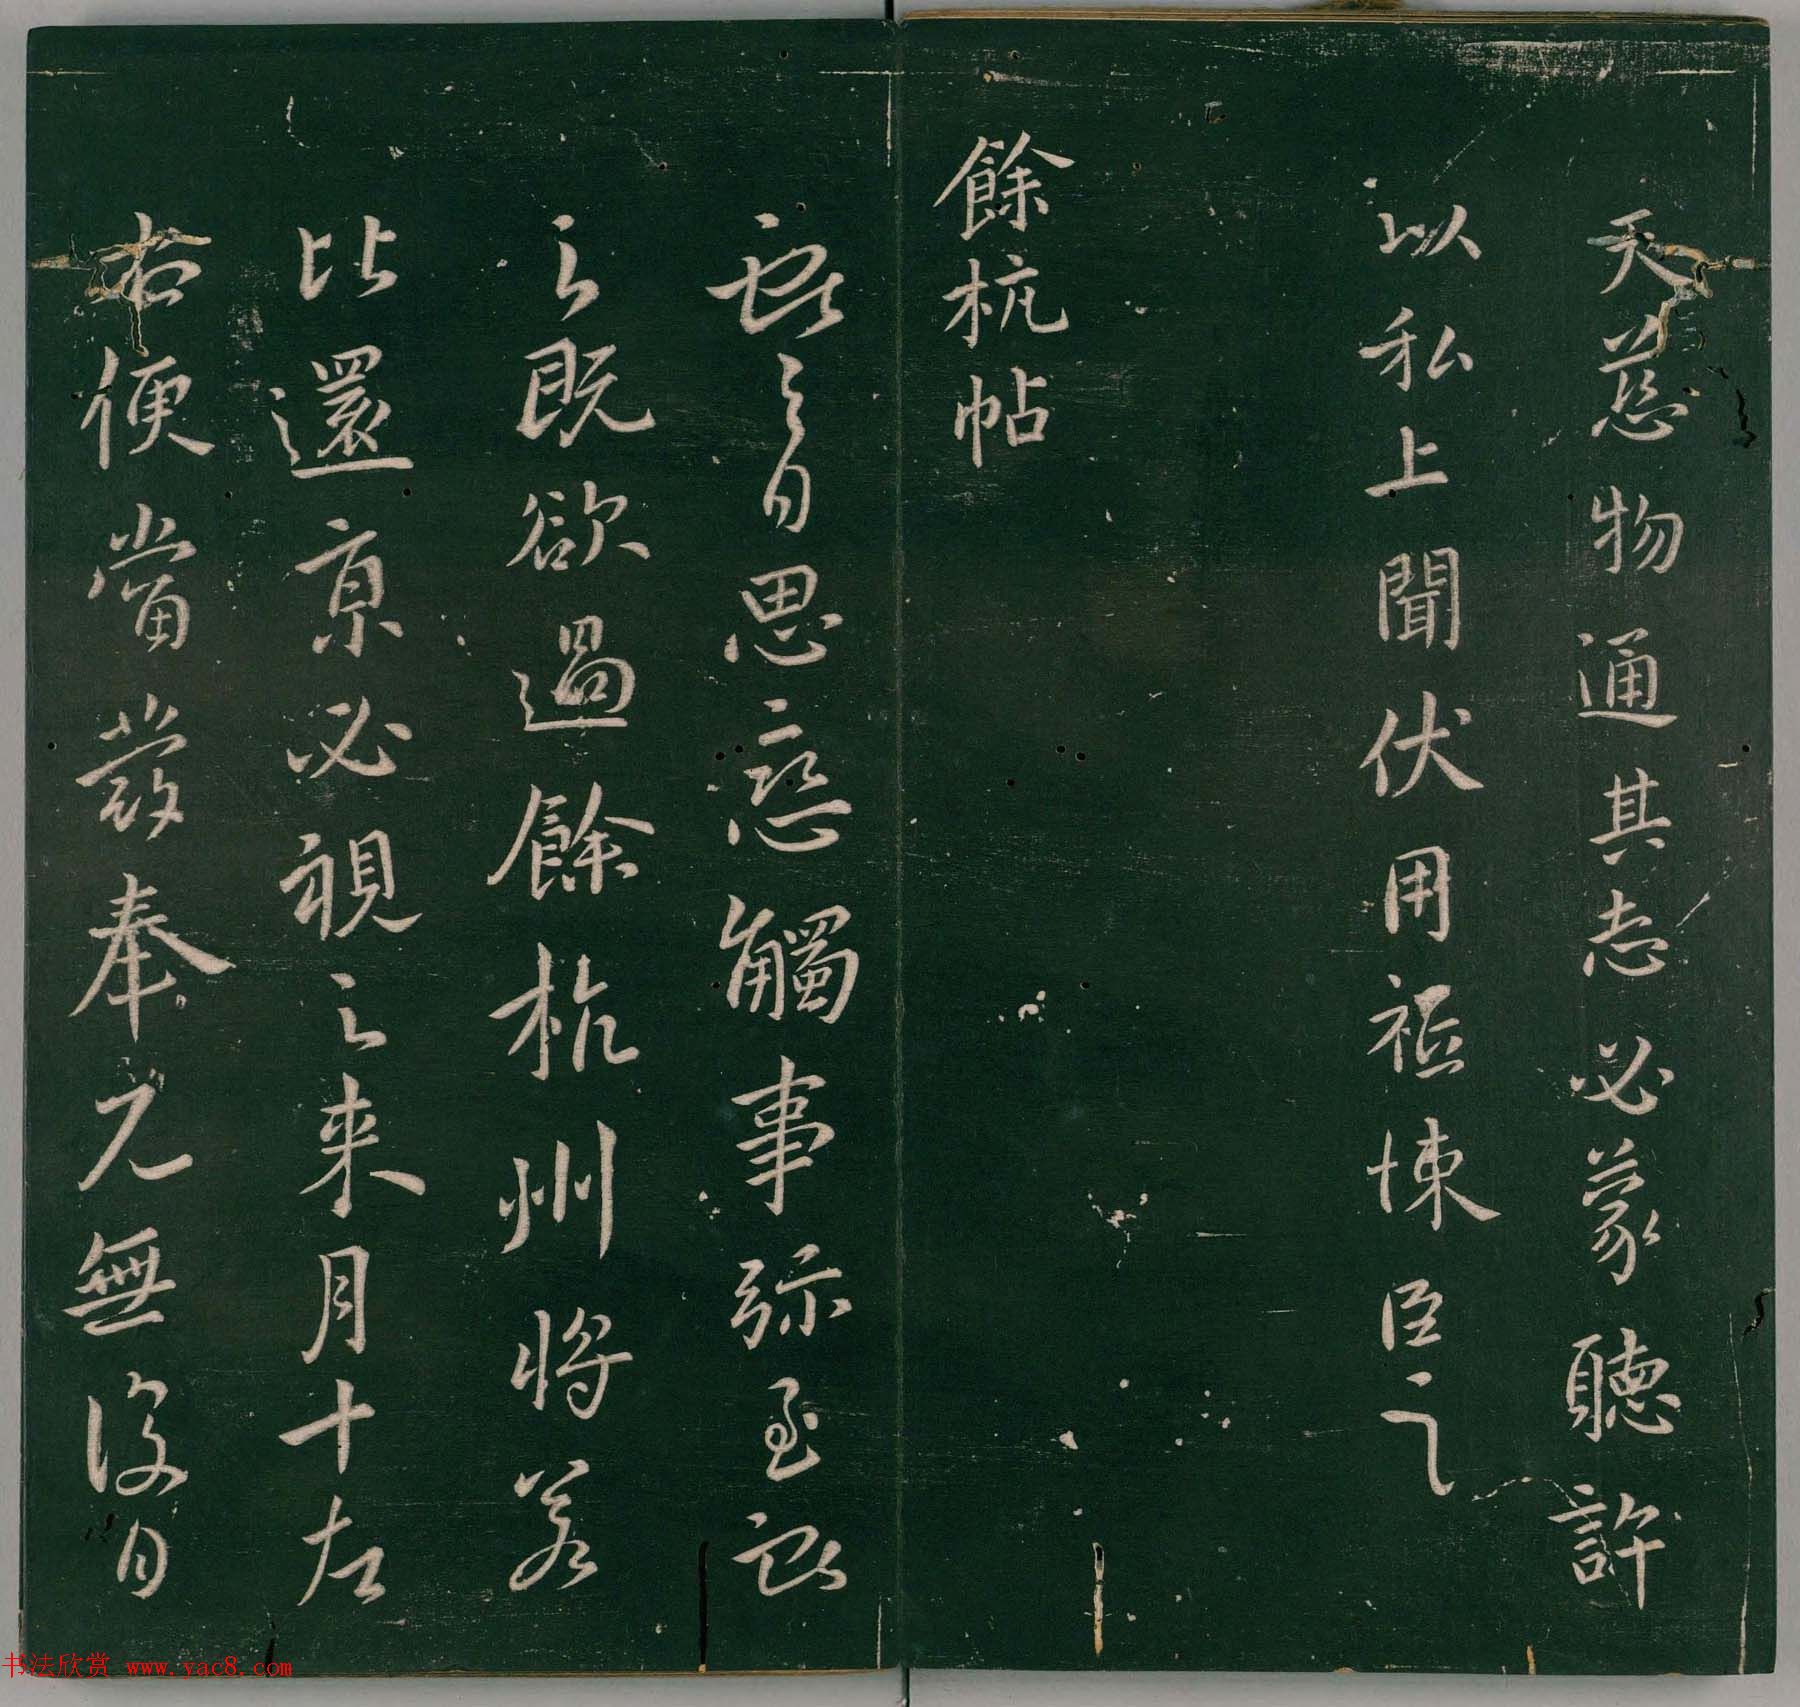 天慈物通其志必蒙聽許
以私上聞伏用祗悚臣之
餘杭帖
獻之白思戀觸事弥至獻
之既欲過餘杭州將若
比還京必視之来月十左
右便當發奉見無復日
书法欣赏 www.yac8.com